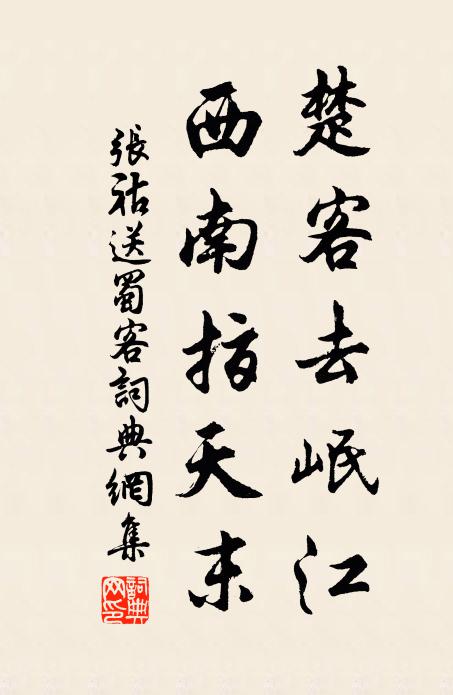 楚客去岷江
西南指天末
張祜送蜀客詞典網集
詞典網印